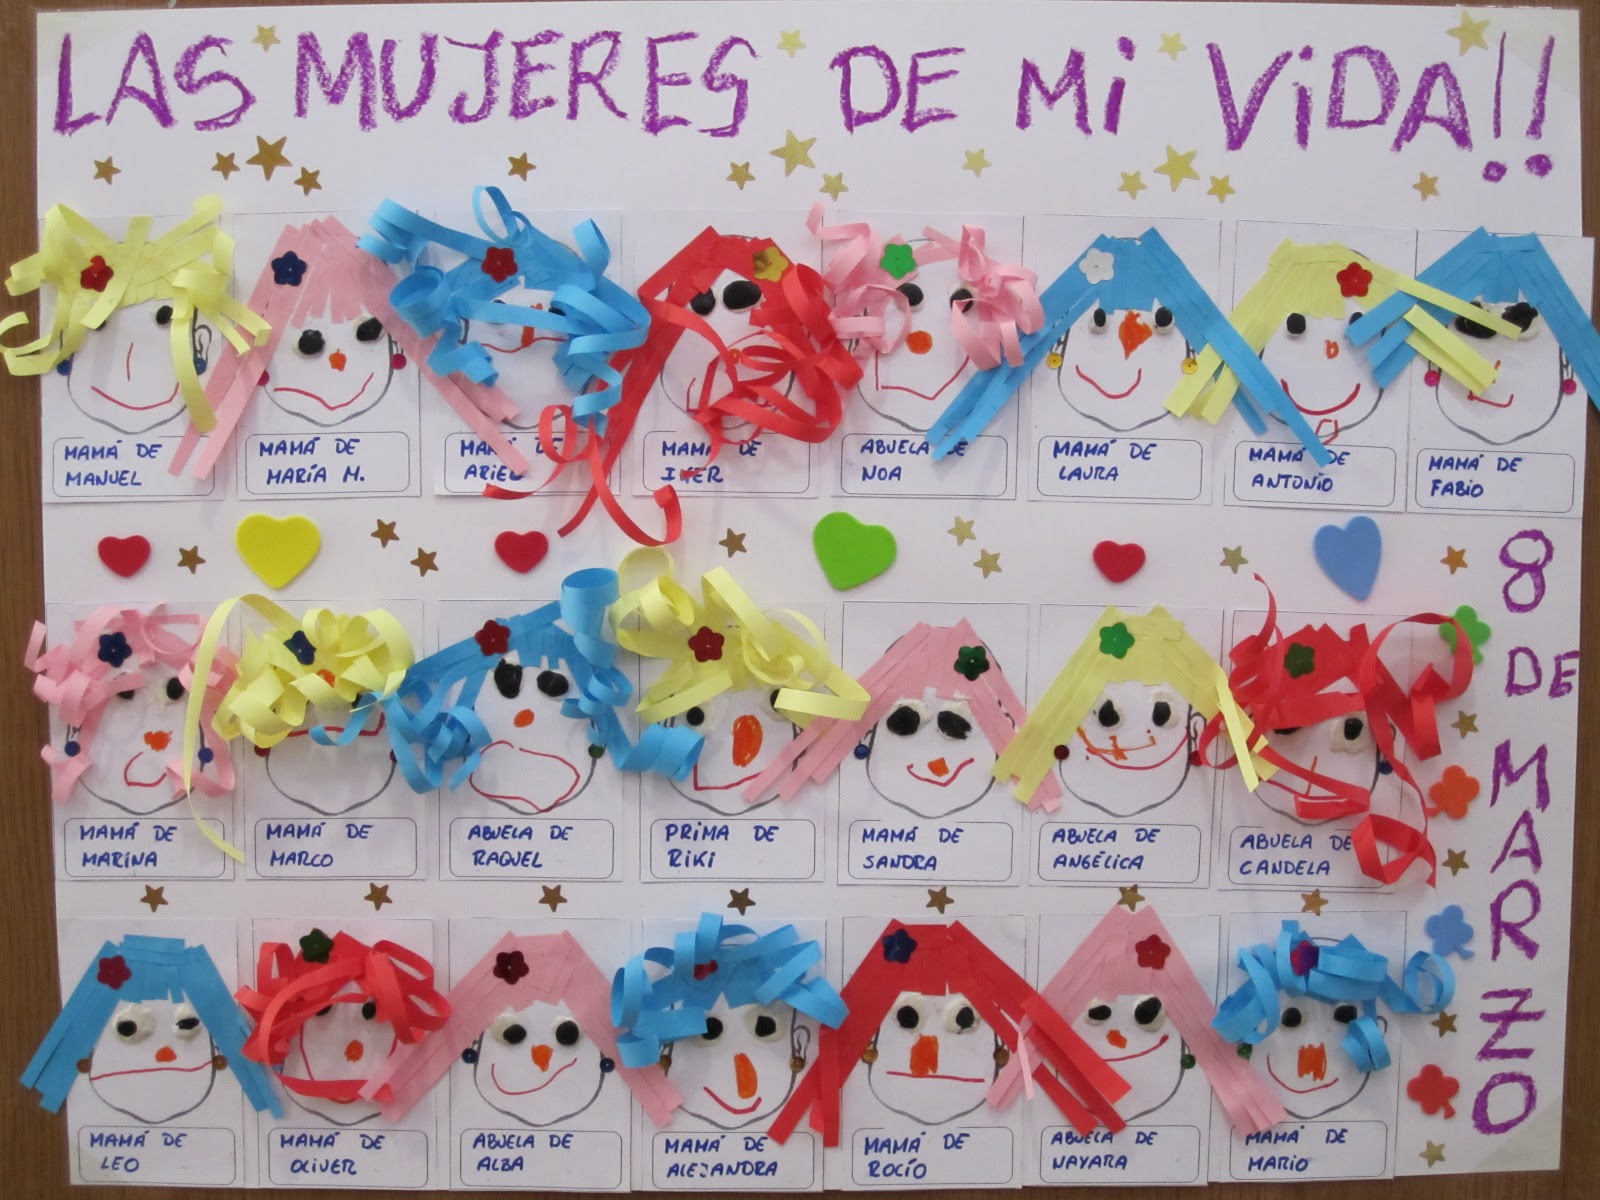 LAS MUJERES DE MI VIDA!!
MAMÁ DE
MANUEL
MAMÁ DE
MARÍA M.
MAMÁ DE
ARIEL
MAMÁ DE
IKER
ABUELA DE
NOA
MAMÁ DE
LAURA
MAMÁ DE
ANTONIO
MAMÁ DE
FABIO
8
DE
MARZO
MAMÁ DE
MARINA
MAMÁ DE
MARCO
ABUELA DE
RAQUEL
PRIMA DE
RIKI
MAMÁ DE
SANDRA
ABUELA DE
ANGÉLICA
ABUELA DE
CANDELA
MAMÁ DE
LEO
MAMÁ DE
OLIVER
ABUELA DE
ALBA
MAMÁ DE
ALEJANDRA
MAMÁ DE
ROCÍO
ABUELA DE
NAYARA
MAMÁ DE
MARIO